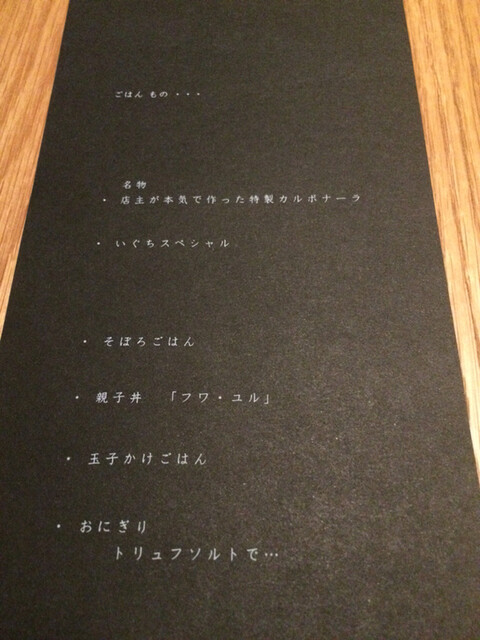 ごはん もの・・・
名物
・ 店主が本気で作った特製カルボナーラ
・ いぐちスペシャル
・ そぼろごはん
・ 親子丼 「フワ・ユル」
・ 玉子かけごはん
・ おにぎり
トリュフソルトで…